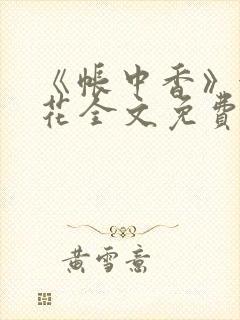 《帐中香》
花全文免费
黄雪意